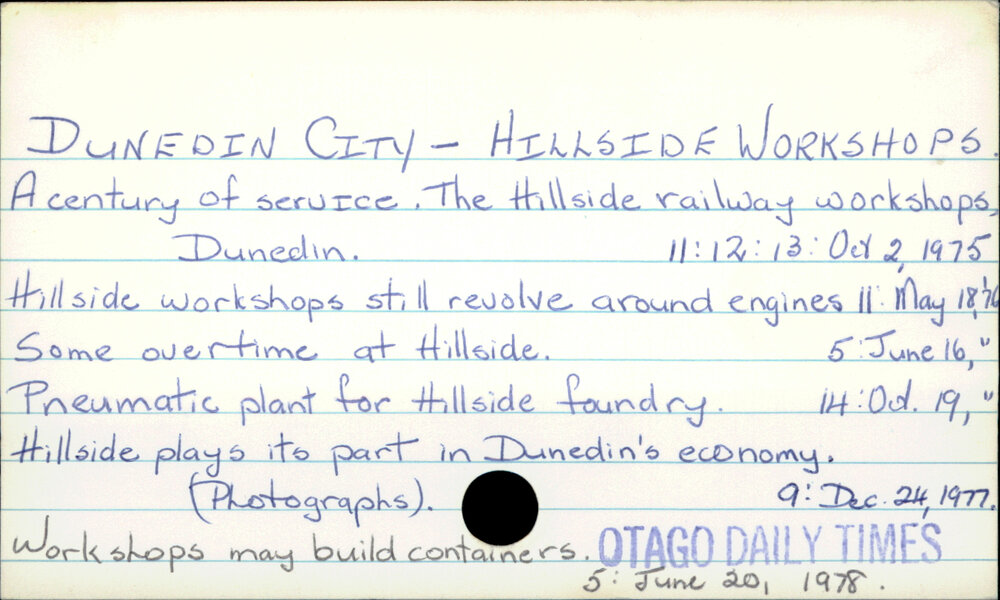 DUNEDIN CITY - HILLSIDE WORKSHOPS.
A century of service. The Hillside railway workshops,
Dunedin. 11:12:13: Oct 2, 1975
Hillside workshops still revolve around engines 11: May 18, '76
Some overtime at Hillside. 5: June 16, "
Pneumatic plant for Hillside foundry. 14: Oct. 19, "
Hillside plays its part in Dunedin's economy.
(Photographs). 9: Dec. 24, 1977.
Workshops may build containers. OTAGO DAILY TIMES
5: June 20, 1978.